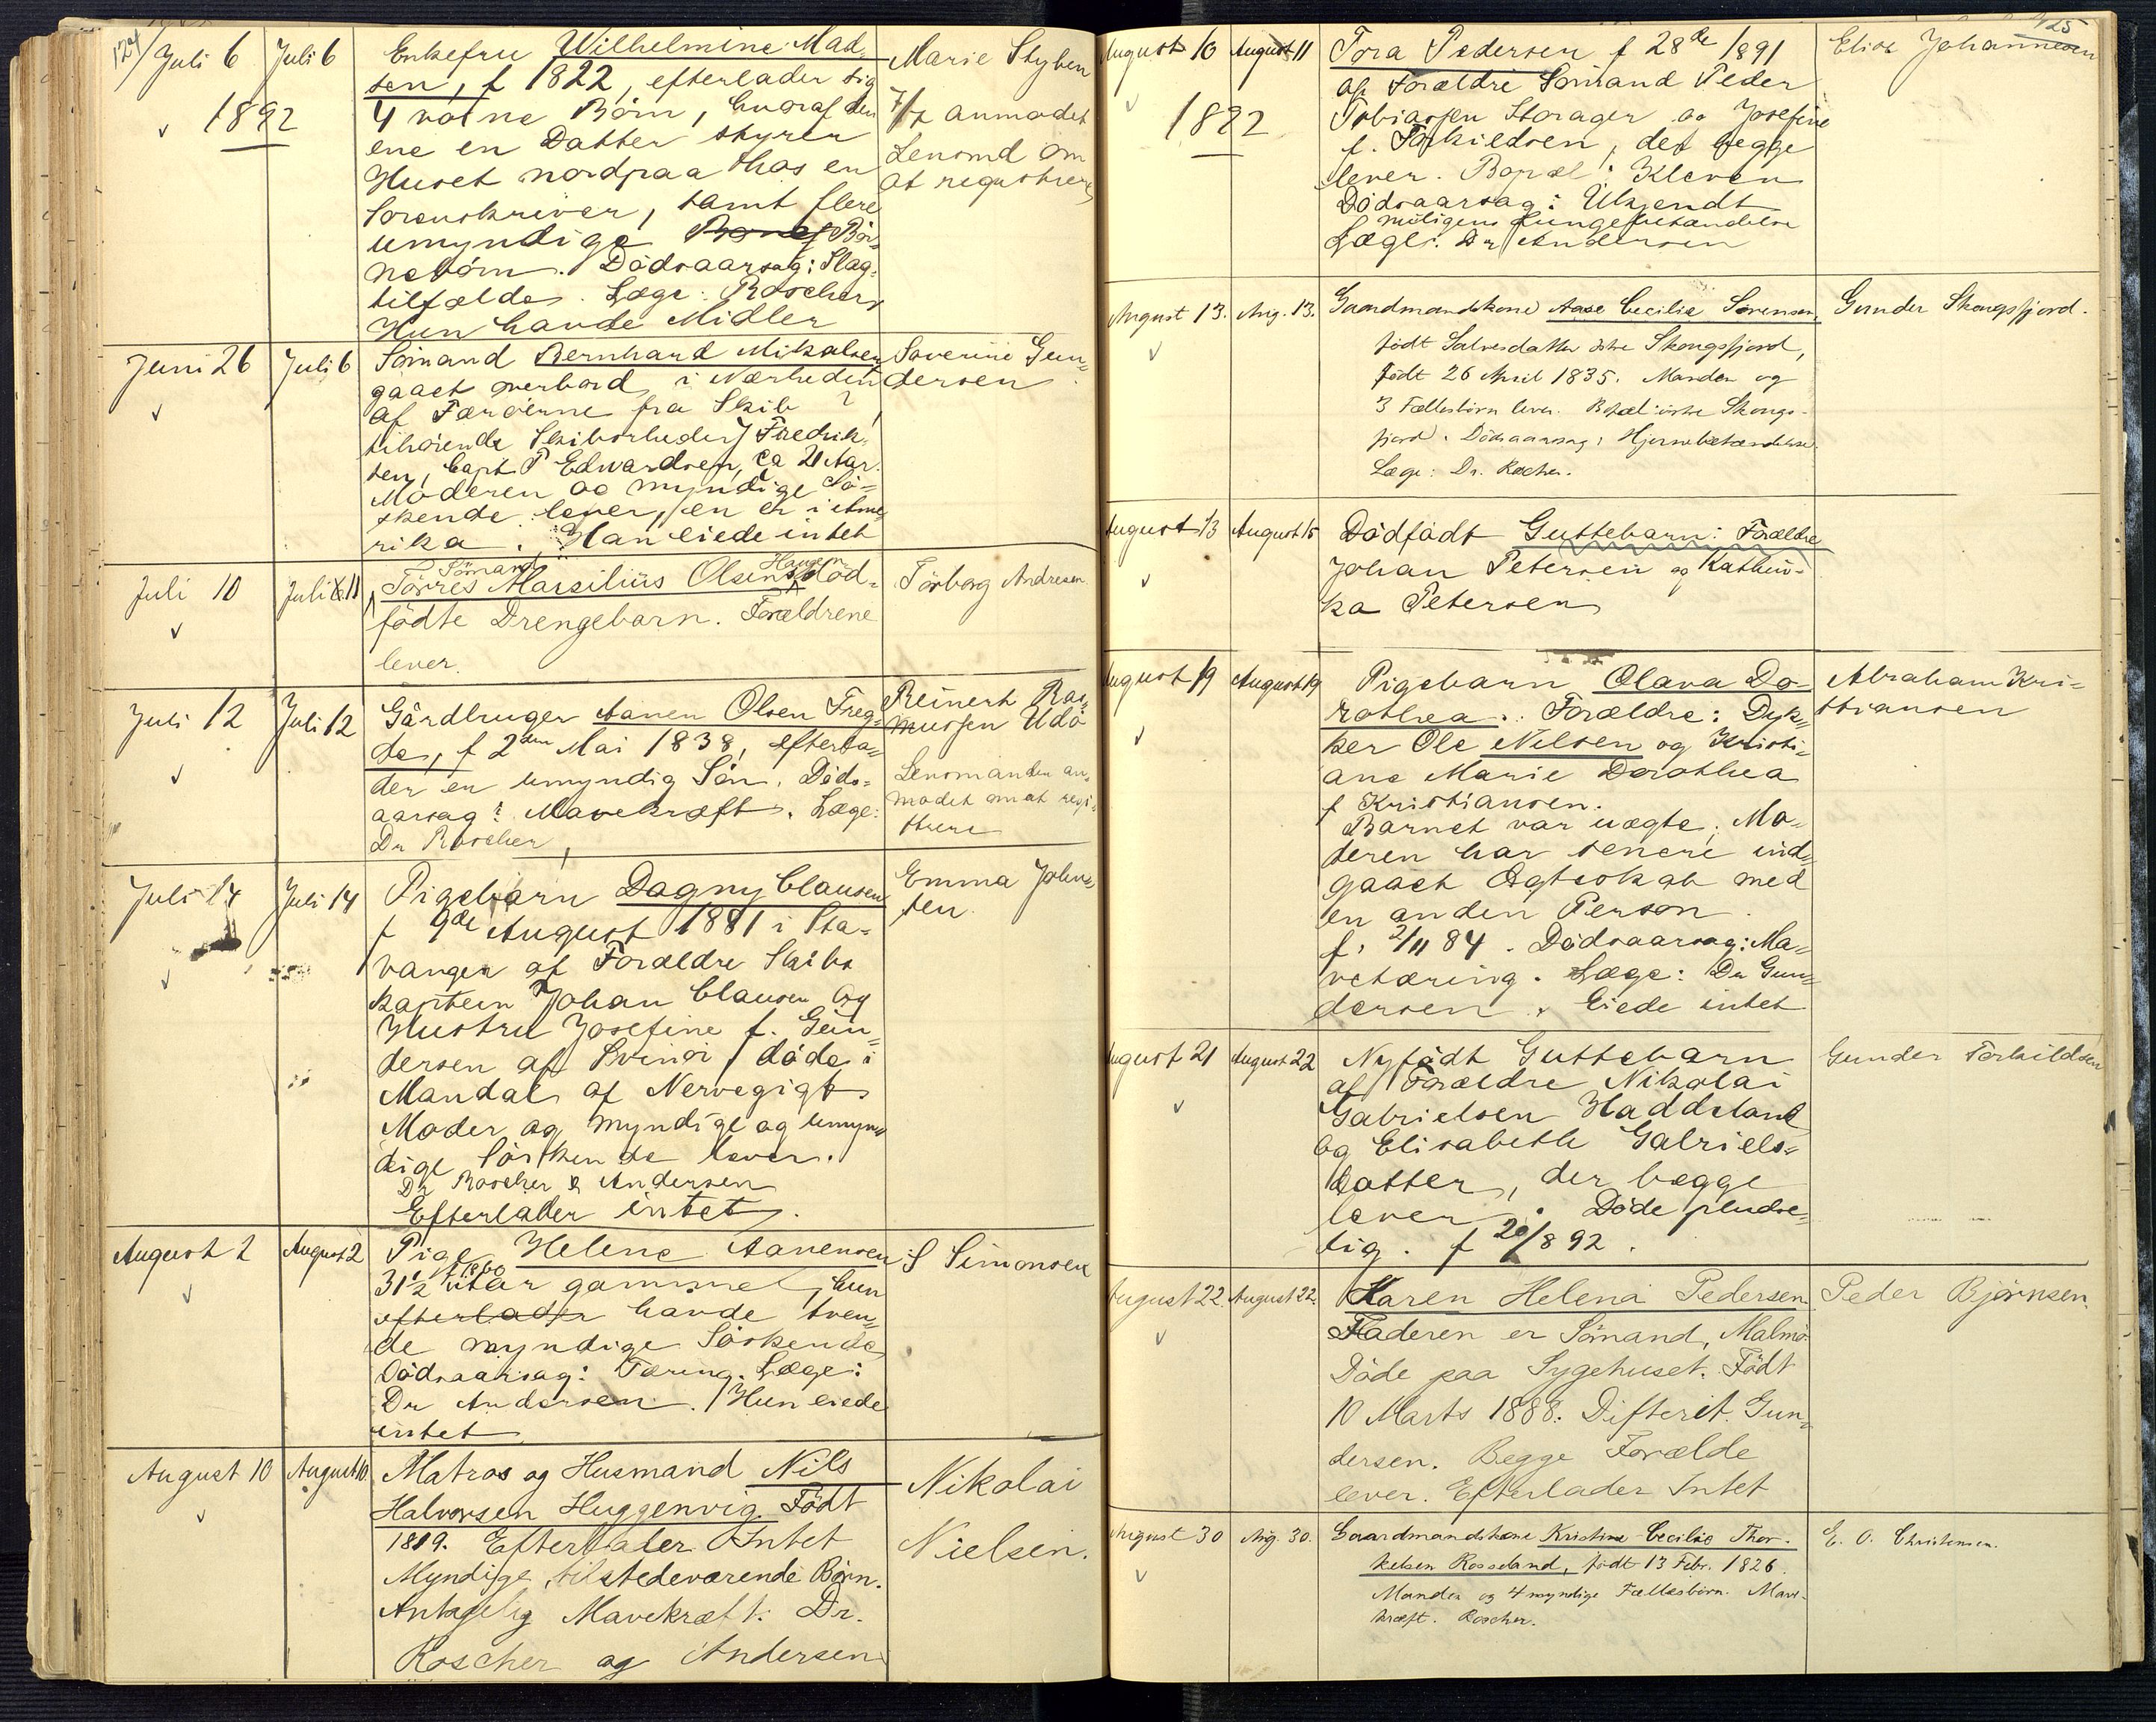 124
Juli 6
Juli 6
1892
Enkefru Wilhelmine Mad-
sen, f 1822, efterlader sig
4 voxne Börn, hvoraf den
ene en Datter styrer
Huset nordpaa hos en
Sorenskriver, samt flere
umyndige Bör-
nebörn. Dödsaarsag: Slag-
tilfælde. Læge: Roscher
Hun havde Midler
Marie Styhen
7/7 anmodet
Lensmd om
at registrere
Juni 26
Juli 6
Sömand Bernhard Mikalsen
gaaet overbord i Nærheden
af Færöerne fra Skib ?
tilhörende Skibsrheder Fredrik-
sen, Capt P Edwardsen, ca 21 Aar.
Moderen og myndige Sö-
skende lever, en er i Ame
rika. Han eiede intet
Severine Gun-
dersen
Juli 10
Juli 11
Sömand Hansen
Törres Marsilius Olsens död-
födte Drengebarn. Forældrene
lever.
Torborg Andresen
Juli 12
Juli 12
Gårdbruger Aanen Olsen Freg-
de, f 2den Mai 1838, efterla-
der en umyndig Sön. Döds-
aarsag: Mavekræft. Læge:
Dr Roscher
Reinert Ras-
mussen Udö
Lensmanden an-
modet om at regi-
strere
Juli 14
Juli 14
Pigebarn Dagny Clausen
f 9de August 1881 i Sta-
vanger af Forældre Skibs
kaptein Johan Clausen og
Hustru Josefine f. Gun-
dersen af Svinör, döde i
Mandal af Nervegigt.
Moder og myndige og umyn-
dige Söskende lever.
Dr Roscher & Andersen
Efterlader intet.
Emma John-
sen
August 2
August 2
Pige Helene Aanensen
f 1860
31½ Aar gammel, hun
efterlader havde tven-
de myndige Söskende
Dödsaarsag: Tæring. Læge:
Dr Andersen. Hun eiede
intet
S Simonsen
August 10
August 10
Matros og Husmand Nils
Halvorsen Huggenvig. Födt
1819. Efterlater Intet
Myndige, tilstedeværende Börn.
Antagelig Mavekræft. Dr.
Roscher og Andersen
Nikolai
Nielsen.
125
August 10
August 11
1892
Tora Pedersen f 28de 1891
af Forældre Sömand Peder
Tobiassen Storager og Josefine
f. Torkildsen, der begge
lever. Bopæl: Kleven
Dödsaarsag: Ukjendt
muligens Lungebetændelse
Læge: Dr Andersen
Elise Johannesen
August 13.
Aug. 13.
Gaardmandskone Aase Cecilie Sørensen,
födt Salvesdatter østre Skongsfjord,
födt 26 April 1835. Manden og
3 Fællesbörn lever. Bopæl: østre Skongs-
fjord. Dödsaarsag: Hjernebetændelse
Læge: Dr. Roscher.
Gunder Skongsfjord.
August 13
August 15
Dödfödt Guttebarn: Forældre
Johan Petersen og Kathin-
ka Petersen
August 19
August 19
Pigebarn Olava Do-
rothea. Forældre: Dyk-
ker Ole Nilsen og Kristi-
ane Marie Dorothea
f Kristiansen.
Barnet var uægte; Mo-
deren har senere ind-
gaaet Ægteskab med
en anden Person.
f. 2/11 84. Dödsaarsag: Ma-
vetæring. Læge: Dr Gun-
dersen. Eiede intet
Abraham Kri-
stiansen
August 21
August 22
Nyfödt Guttebarn
af Forældre Nikolai
Gabrielsen Haddeland
og Elisabeth Gabriels-
datter, der begge
lever. Döde pludse-
lig. f 20/8 92.
Gunder Torkildsen
August 22.
August 22.
Karen Helena Pedersen
Faderen er Sömand, Malmö
Döde paa Sygehuset. Födt
10 Marts 1888. Difterit. Gun-
dersen. Begge Forælde
lever. Efterlader Intet
Peder Bjørnsen.
August 30
Aug. 30.
Gaardmandskone Kristine Cecilie Thor-
kelsen Rosseland, födt 13 Febr. 1826.
Manden og 4 myndige Fællesbörn. Mave-
kræft. Roscher.
E. O. Christensen.